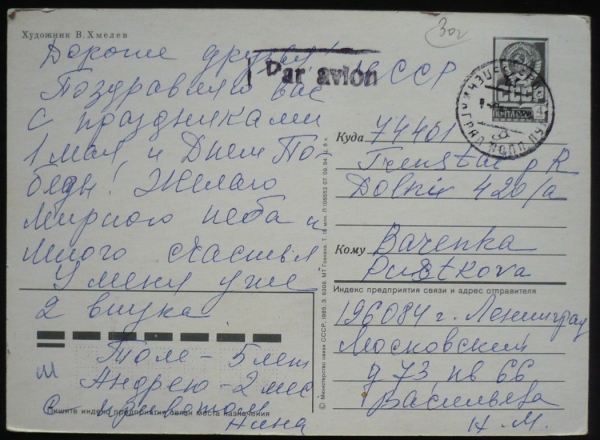 Художник В. Хмелев
30г
Дорогие друзья!
Par avion
ЧССР
Поздравляю вас
с праздниками
1 мая, и Днем По-
беды! Желаю
мирного неба и
много счастья
У меня уже
2 внука
Толе - 5 лет
Андрею - 2 мес
С уважением
Нина
Пишите индекс предприятия связи места назначения
Куда 74401
Frenštát p R
Dolní 420/a
Кому Barenka
Pustkova
Индекс предприятия связи и адрес отправителя
196084 г. Ленинград
Московский
д 73 кв 66
Васильева
Н. М.
© Министерство связи СССР, 1985.